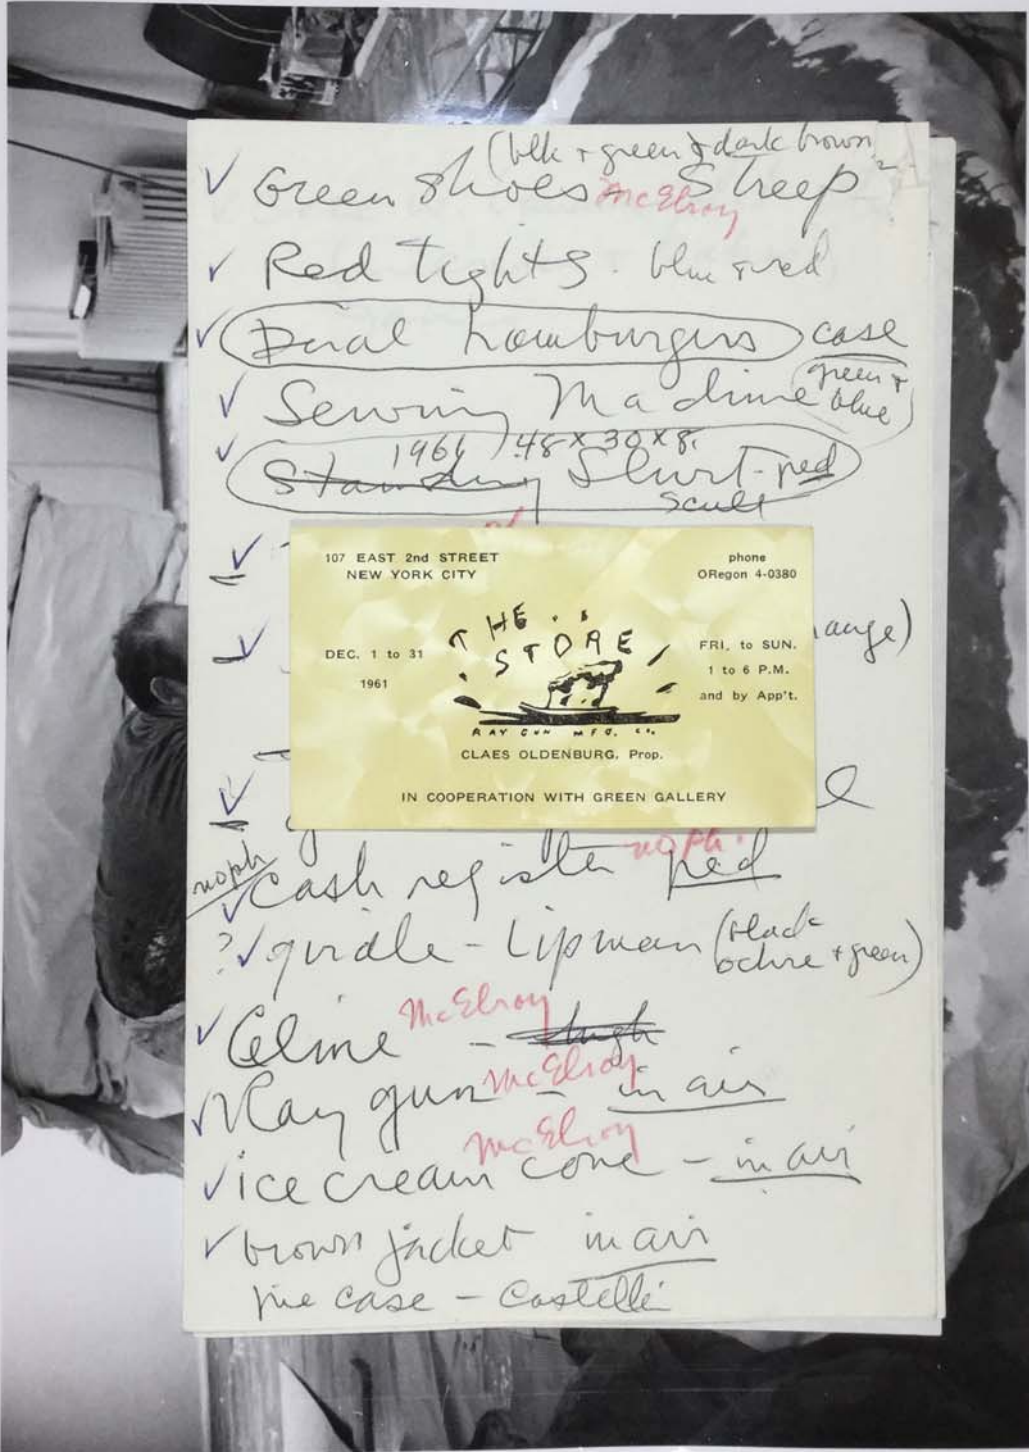 (blk + green & dark brown
Green shoes McElroy Streep
Red tights - blue & red
Dual hamburgers case
Sewing Machine (green + blue)
1961 48 x 30 x 8.
Standing Shirt - ped
Sculp
107 EAST 2nd STREET
NEW YORK CITY
phone
ORegon 4-0380
THE STORE
DEC. 1 to 31
1961
FRI, to SUN.
1 to 6 P.M.
and by App't.
ange)
RAY GUN MFG. CO.
CLAES OLDENBURG, Prop.
IN COOPERATION WITH GREEN GALLERY
noph.
noph Cash register ped
? girdle - Lipman (black ochre + green)
McElroy
Celine -
McElroy
Ray gun - in air
McElroy
ice cream cone - in air
brown jacket in air
pie case - Castelli